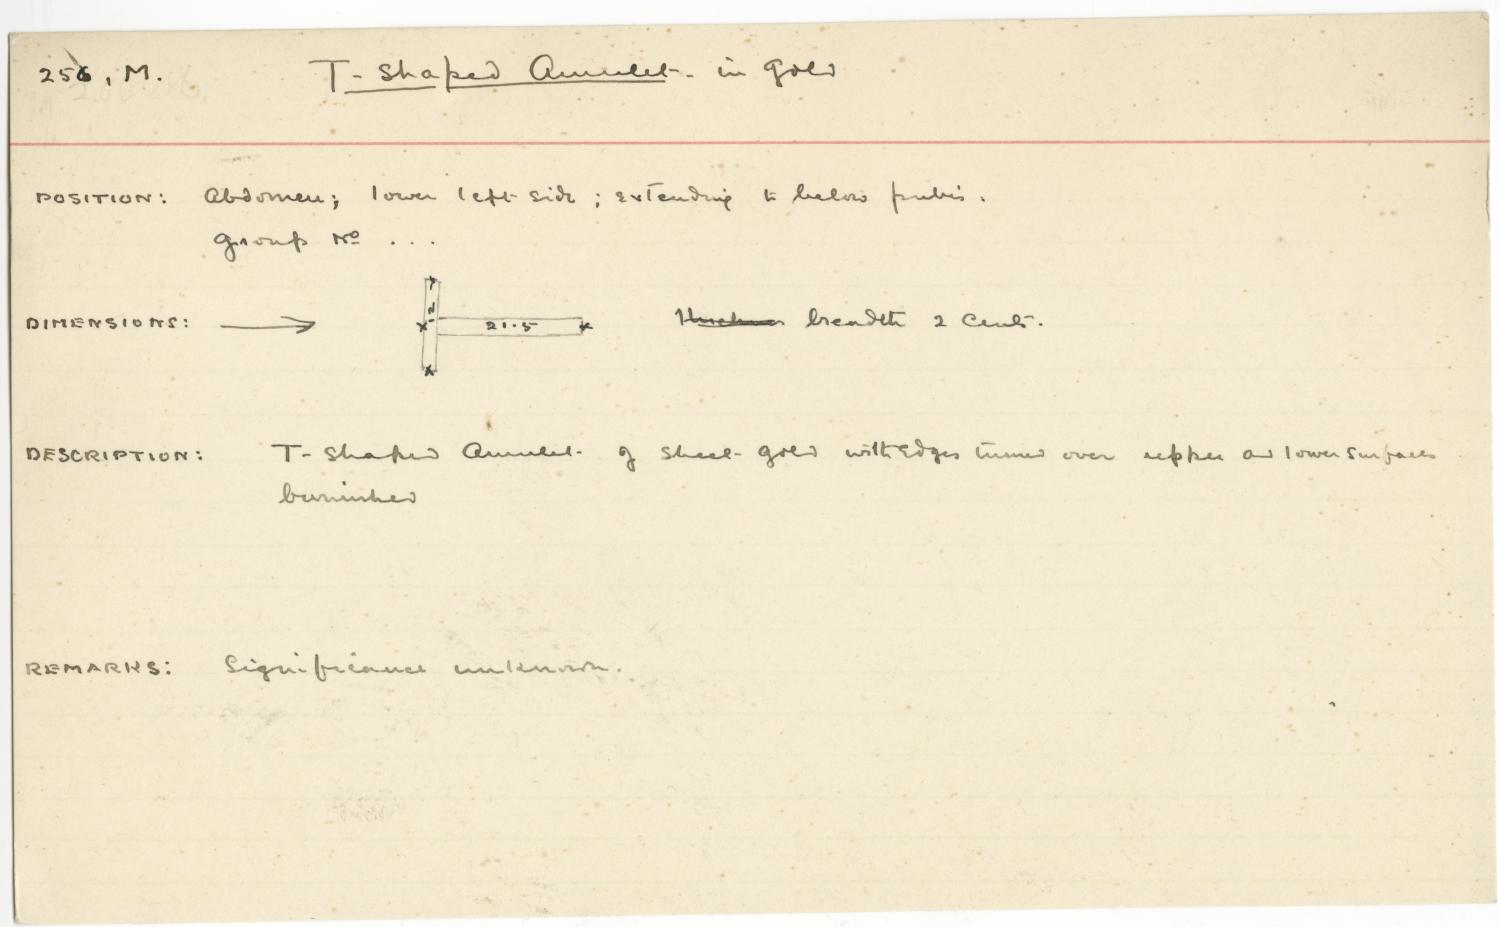 256, M. T-shaped Amulet - in gold
POSITION: Abdomen; lower left side; extending to below pubis.
Group No ...
DIMENSIONS: 21.5 breadth 2 cents.
DESCRIPTION: T-shaped Amulet of sheet-gold with edges turned over upper and lower surfaces
burnished
REMARKS: Significance unknown.